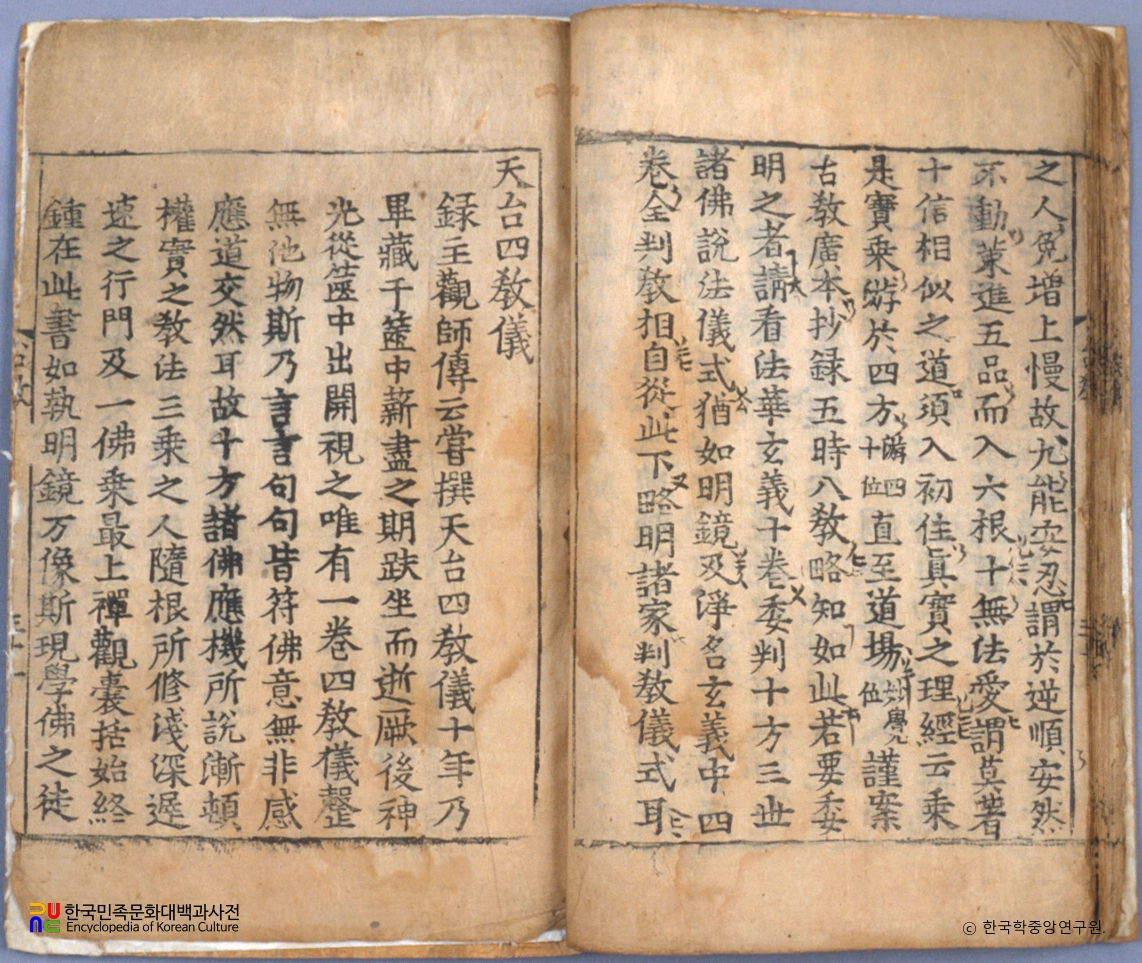 之人免增上慢故九能安忍謂於逆順安然
不動策進五品而入六根十無法愛謂莫著
十信相似之道須入初住眞實之理經云乘
是寶乘遊於四方遊四十位直至道塲妙覺位謹案
古敎廣本抄録五時八敎略知如此若要委
明之者請看法華玄義十卷委判十方三世
諸佛說法儀式猶如明鏡及淨名玄義中四
卷全判敎相自從此下略明諸家判敎儀式耳
天台四敎儀
録主觀師傳云嘗撰天台四敎儀十年乃
畢藏于篋中薪盡之期趺坐而逝厥後神
光從篋中出開視之唯有一卷四敎儀整
無他物斯乃言言句句皆符佛意無非感
應道交然耳故十方諸佛應機所說漸頓
權實之敎法三乘之人隨根所修淺深遲
速之行門及一佛乘最上禪觀囊括始終
鍾在此書如執明鏡万像斯現學佛之徒
한국민족문화대백과사전
Encyclopedia of Korean Culture
© 한국학중앙연구원